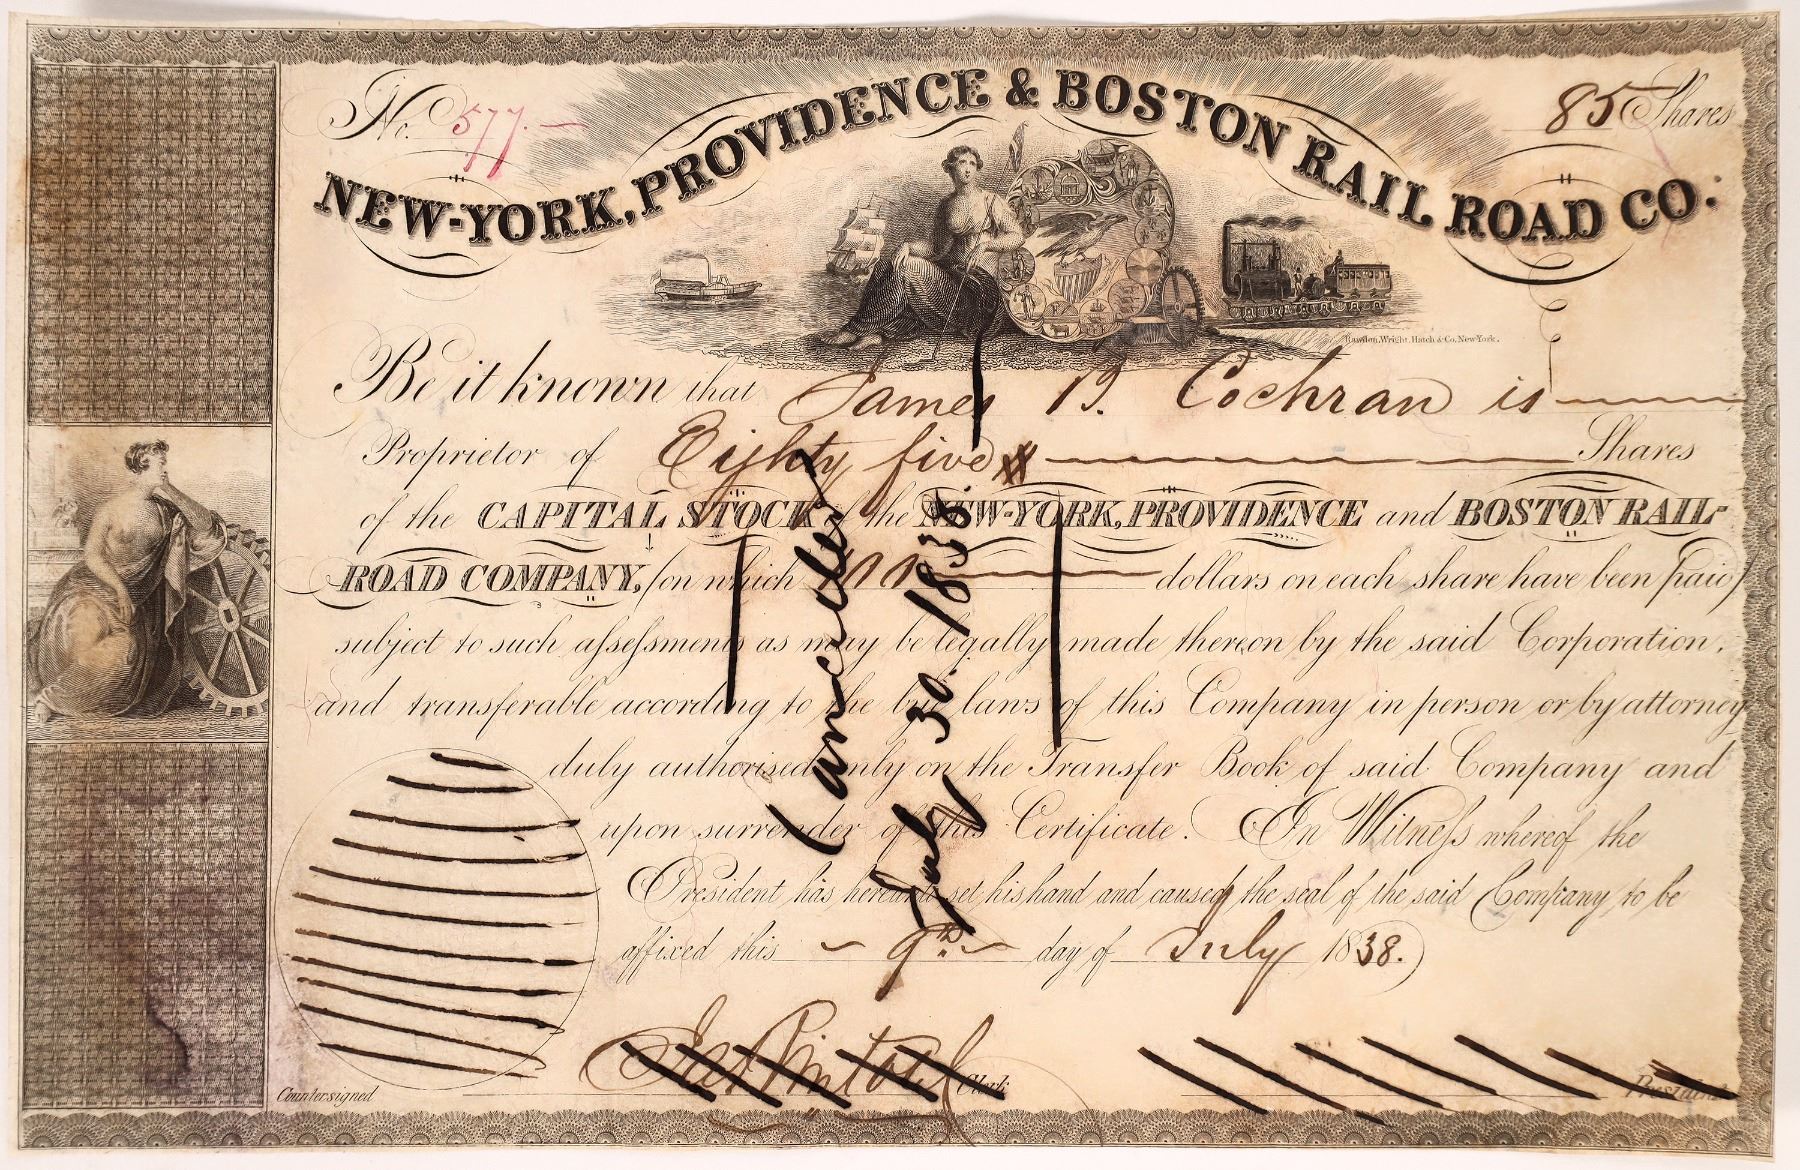 No. 577.
85 Shares
NEW-YORK, PROVIDENCE & BOSTON RAIL ROAD CO.
Rawdon, Wright, Hatch & Co. New-York.
Be it known that James B. Cochran is
Proprietor of Eighty five Shares
of the CAPITAL STOCK of the NEW-YORK, PROVIDENCE and BOSTON RAIL-
ROAD COMPANY, on which 100 dollars on each share have been paid
subject to such assessments as may be legally made thereon by the said Corporation,
and transferable according to the bye laws of this Company in person or by attorney
duly authorised only on the Transfer Book of said Company and
upon surrender of this Certificate. In Witness whereof the
President has hereunto set his hand and caused the seal of the said Company to be
affixed this 9th day of July 1838.
Cancelled
July 30. 1838.
Countersigned
Clerk
President